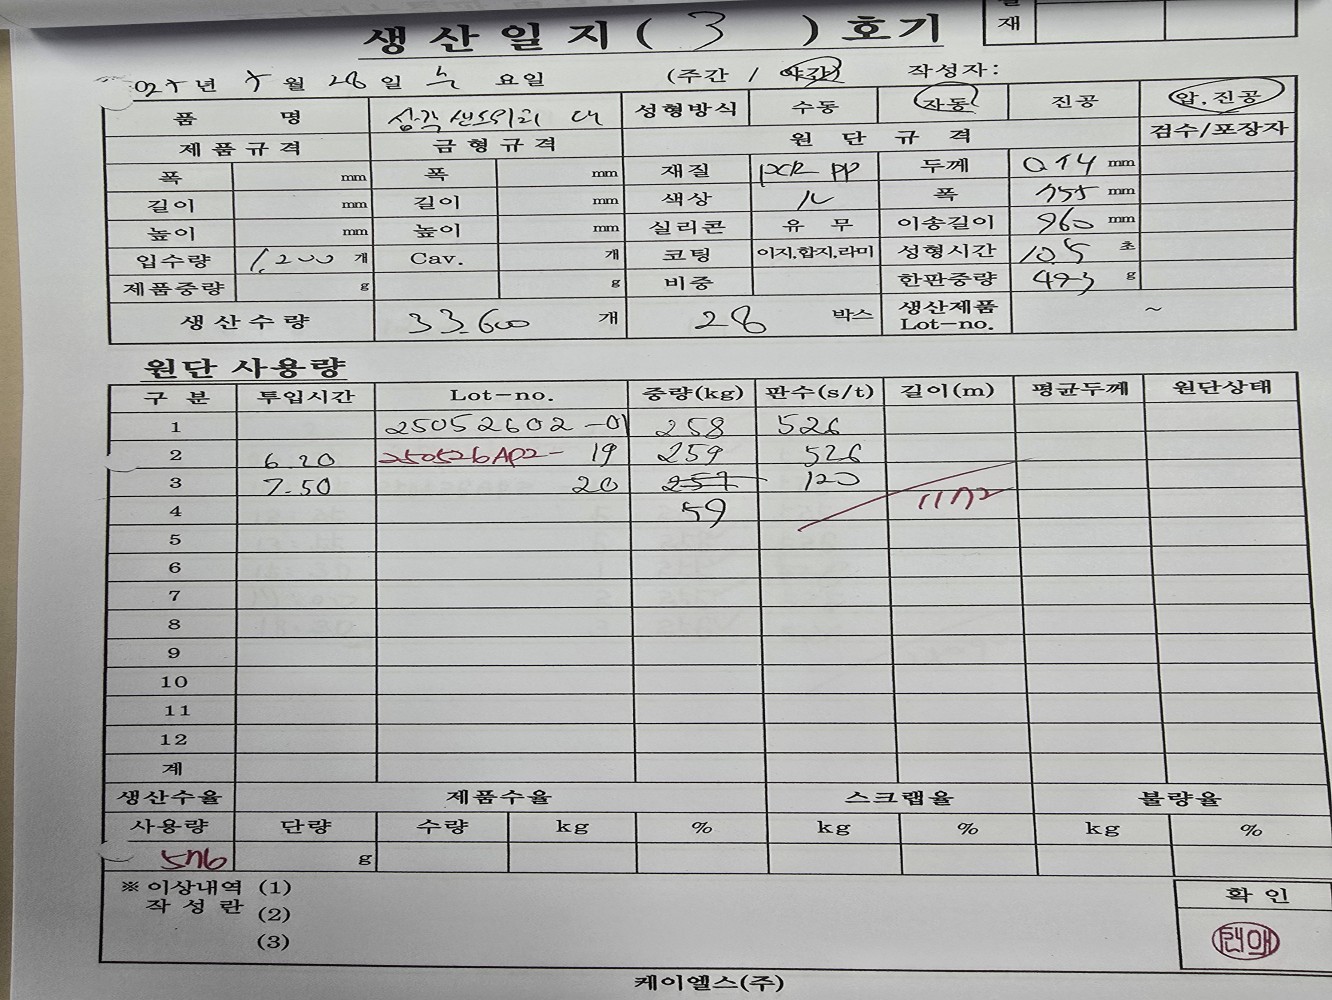 재
생산일지( 3 )호기
025년 5월 28일 수 요일 (주간 / 야간) 작성자:
품 명 삼각샌드위치 대 성형방식 수동 자동 진공 압.진공
제품규격 금형규격 원단규격 검수/포장자
폭 mm 폭 mm 재질 PCR PP 두께 0.74 mm
길이 mm 길이 mm 색상 N 폭 755 mm
높이 mm 높이 mm 실리콘 유 무 이송길이 960 mm
입수량 1,200 개 Cav. 개 코팅 이지.합지.라미 성형시간 10.5 초
제품중량 g g 비중 한판중량 493 g
생산수량 33,600 개 28 박스 생산제품 Lot-no. ~
원단 사용량
구 분 투입시간 Lot-no. 중량(kg) 판수(s/t) 길이(m) 평균두께 원단상태
1 25052602 -01 258 526
2 6.20 250526AP2- 19 259 526
3 7.50 20 257 120
4 59 1172
5
6
7
8
9
10
11
12
계
생산수율 제품수율 스크랩율 불량율
사용량 단량 수량 kg % kg % kg %
576 g
※ 이상내역 (1) 확 인
작 성 란 (2)
(3)
케이엘스(주)